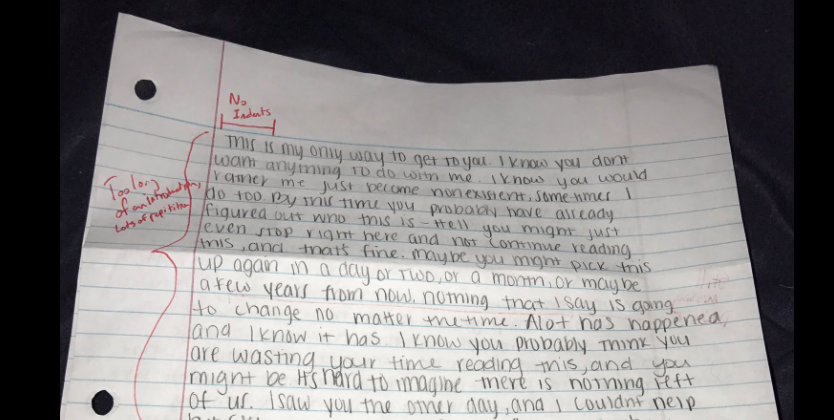 No
Indents
Too long
of an introduction,
Lots of repetition
This is my only way to get to you. I know you dont
want anything to do with me. I know you would
rather me just become nonexistent, sometimes I
do too. By this time you probably have already
figured out who this is - Hell you might just
even stop right here and not continue reading
this, and thats fine. maybe you might pick this
up again in a day or two, or a month, or maybe
a few years from now. nothing that I say is going
to change no matter the time. Alot has happened,
and I know it has. I know you probably think you
are wasting your time reading this, and you
might be. It's hard to imagine there is nothing left
of us. I saw you the other day, and I couldnt help